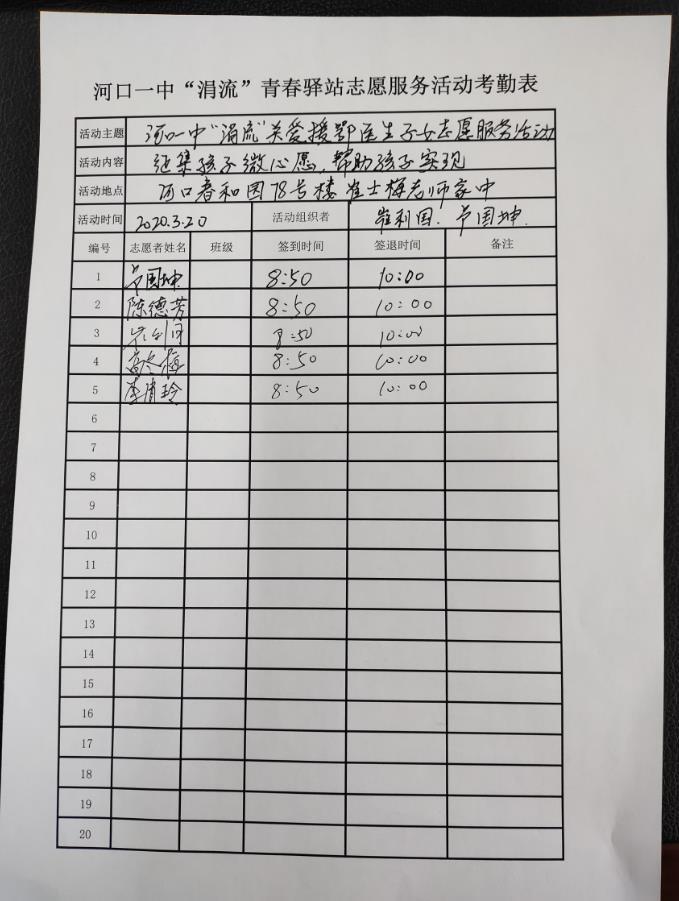 河口一中“涓流”青春驿站志愿服务活动考勤表
活动主题 河口一中“涓流”关爱援鄂医生子女志愿服务活动
活动内容 征集孩子微心愿,帮助孩子实现
活动地点 河口春和园78号楼 崔士梅老师家中
活动时间 2020.3.20 活动组织者 崔利国. 芦国坤.
编号 志愿者姓名 班级 签到时间 签退时间 备注
1 芦国坤 8:50 10:00
2 陈德芳 8:50 10:00
3 8:50 10:00
4 8:50 10:00
5 李清玲 8:50 10:00
6
7
8
9
10
11
12
13
14
15
16
17
18
19
20